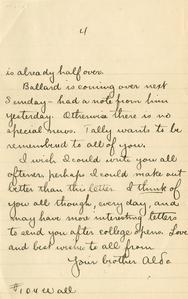 4
is already half over.
Ballard is coming over next
Sunday - had a note from him
yesterday. Otherwise there is no
special news. Tally wants to be
remembered to all of you.
I wish I could write you all
oftener, perhaps I could make out
better than this letter. I think of
you all though, every day, and
may have more interesting letters
to send you after college opens. Love
and best wishes to all from
Your brother Aldo
#104 Wall